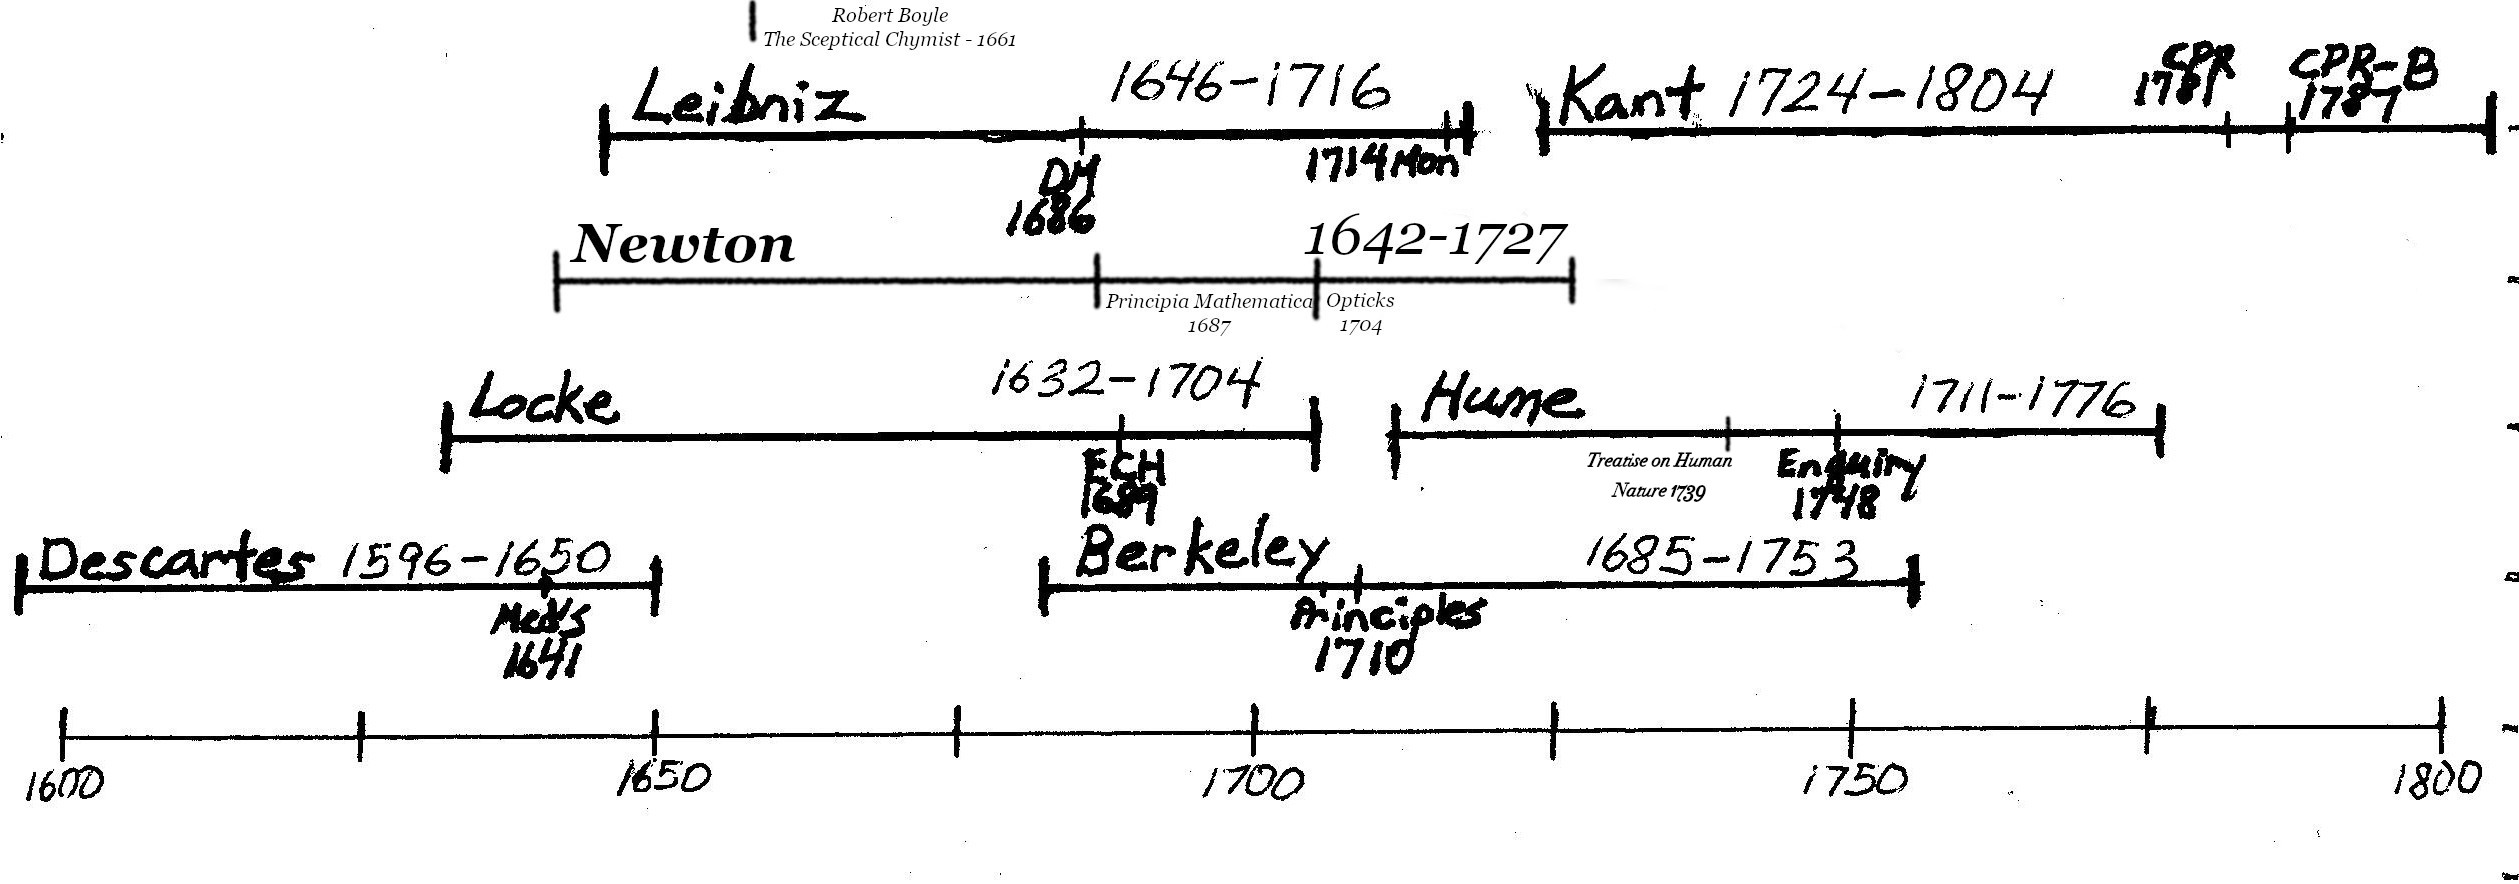 Robert Boyle
The Sceptical Chymist - 1661
Leibniz 1646-1716
DM
1686
1714 Mon
Kant 1724-1804
CPR
1781
CPR-B
1787
Newton 1642-1727
Principia Mathematica
1687
Opticks
1704
Locke 1632-1704
ECH
1689
Hume 1711-1776
Treatise on Human
Nature 1739
Enquiry
1748
Descartes 1596-1650
Meds
1641
Berkeley 1685-1753
Principles
1710
1600 1650 1700 1750 1800